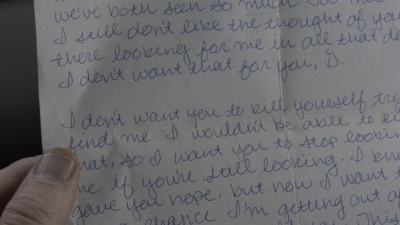 we've both seen so much
I still don't like the thought of you
there looking for me in all that de
I don't want that for you, D.
I don't want you to kill yourself try
find me. I wouldn't be able to
that, so I want you to stop lookin
me if you're still looking. I kn
gave you hope, but now I want t
a chance. I'm getting out a
This